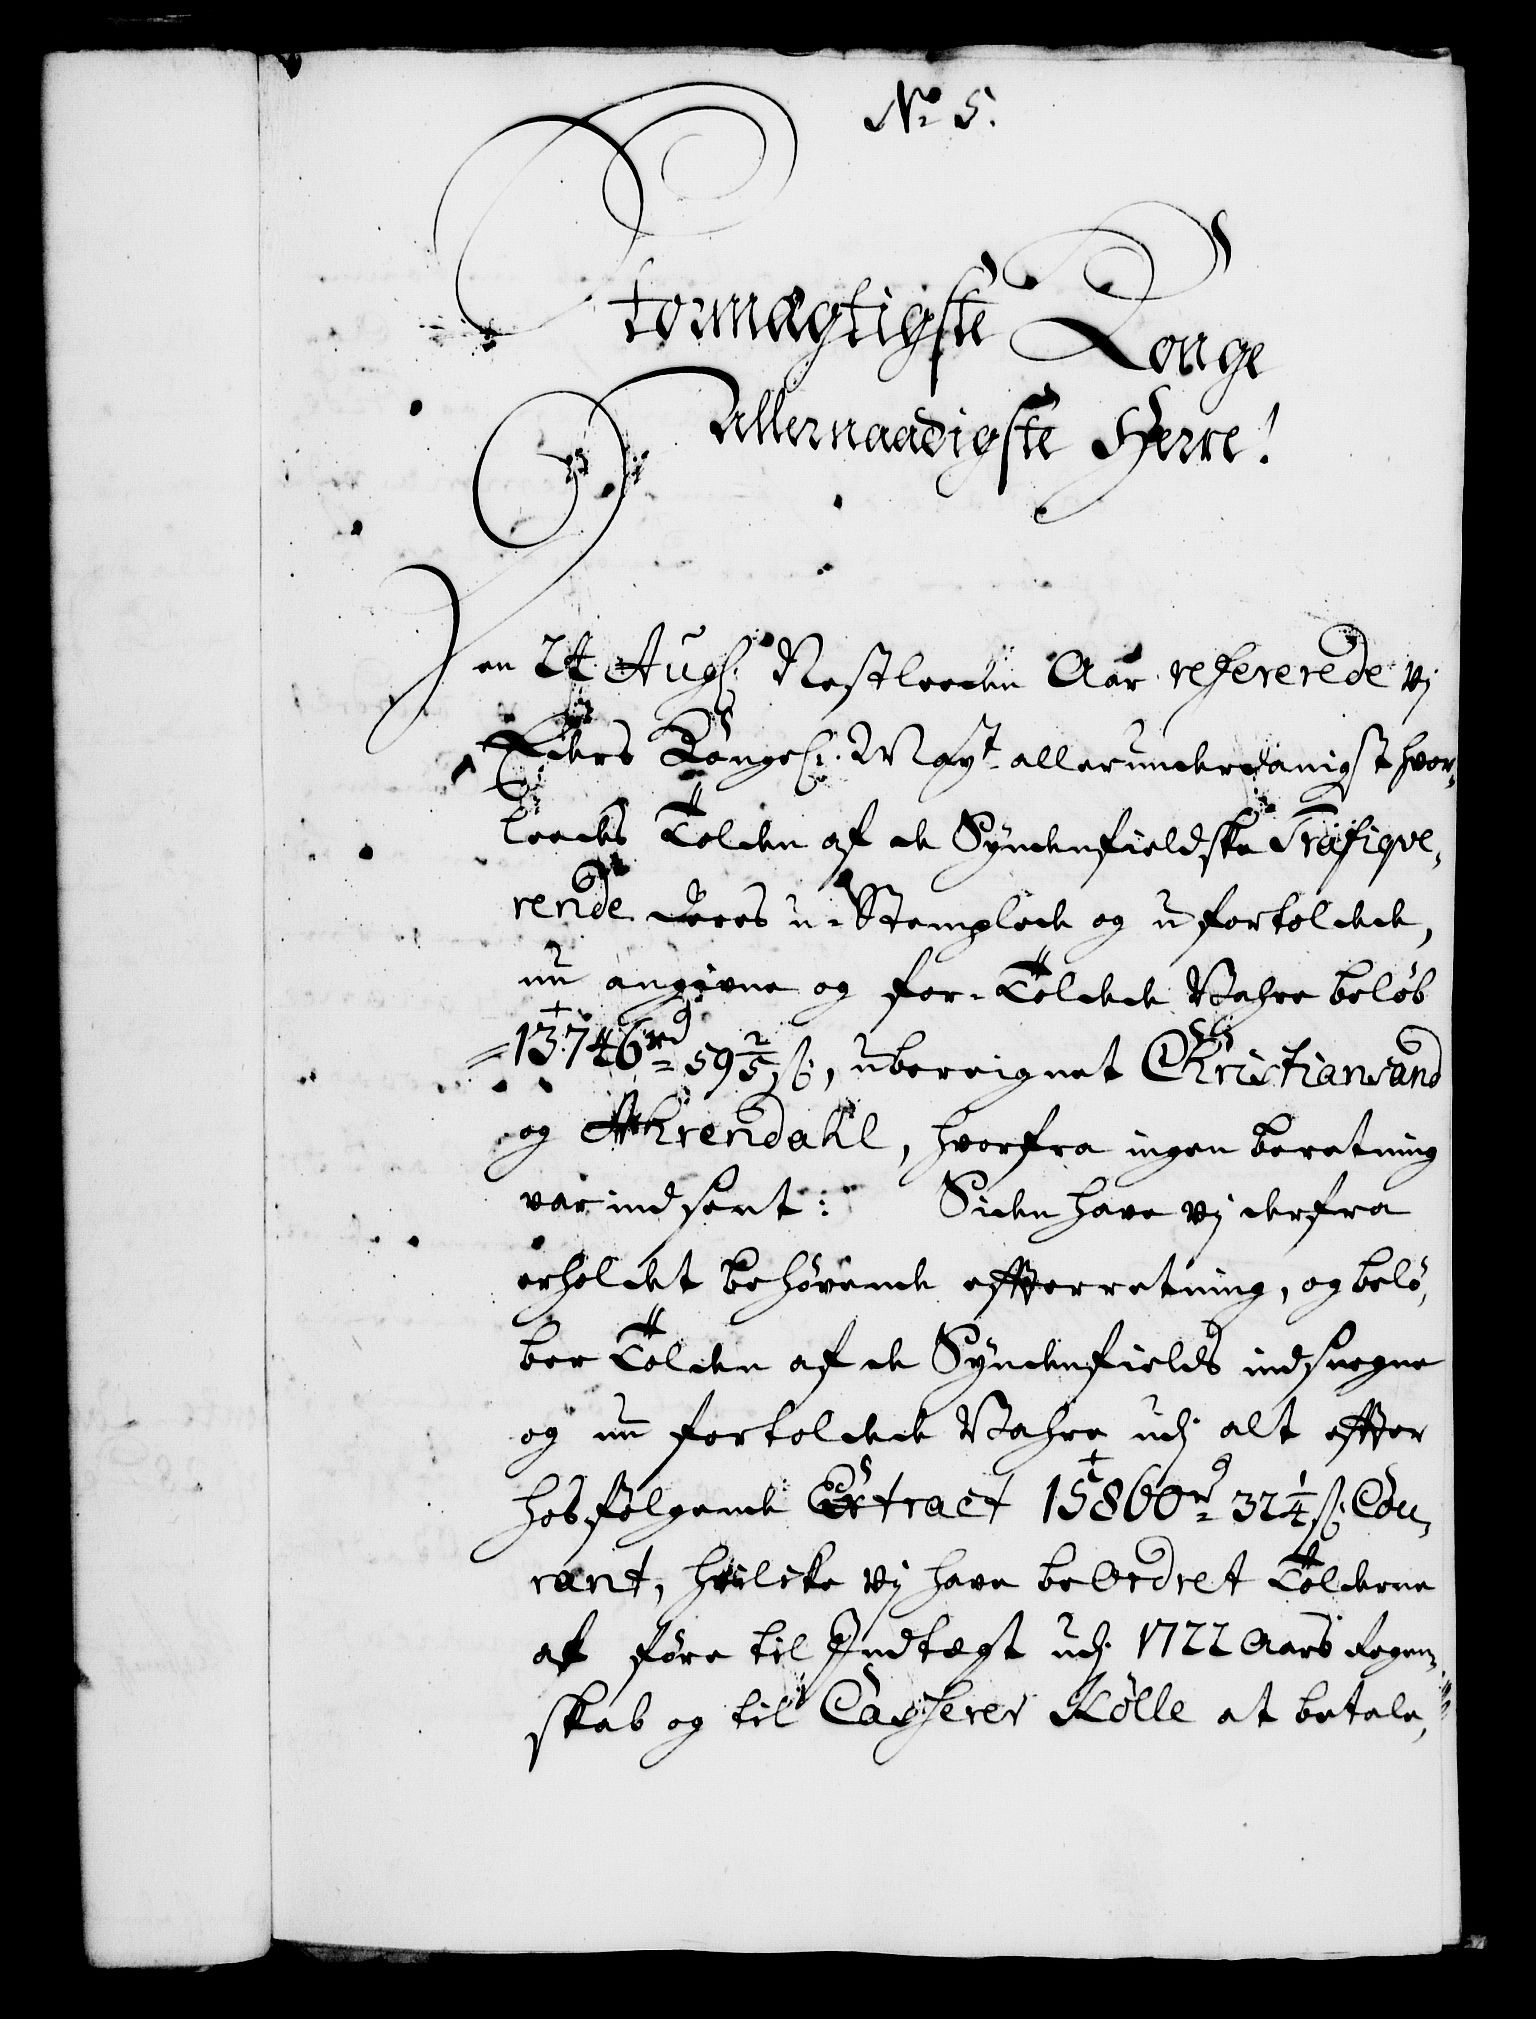 No. 5.
Stormægtigste Konge
Allernaadigste Herre!
Den 24 Augs: Nestleeden Aar refererede vj
Eders Kongel: Mayt allerunderdanigst hvor-
leedes Tolden af de Syndenfieldske Trafiqve-
rende deres u-Stemplede og ufortoldede,
nu angivne og for-Toldede Vahre beløb
13746rd 59 2/5 ß, uberegnet Christiansand
og Ahrendahl, hvorfra ingen beretning
var indsent: Siden have vj derfra
erholdet behøvende effterretning, og belø-
ber Tolden af de Syndenfields indsvegne
og nu fortoldede Vahre udj alt effter
hosfølgende Extract 15860rd 32 1/4 ß Cou-
rant, hvilke vj have beordret Tolderne
at føre til Indtægt udj 1722 Aars Regen-
skab og til Casserer Kølle at betale,